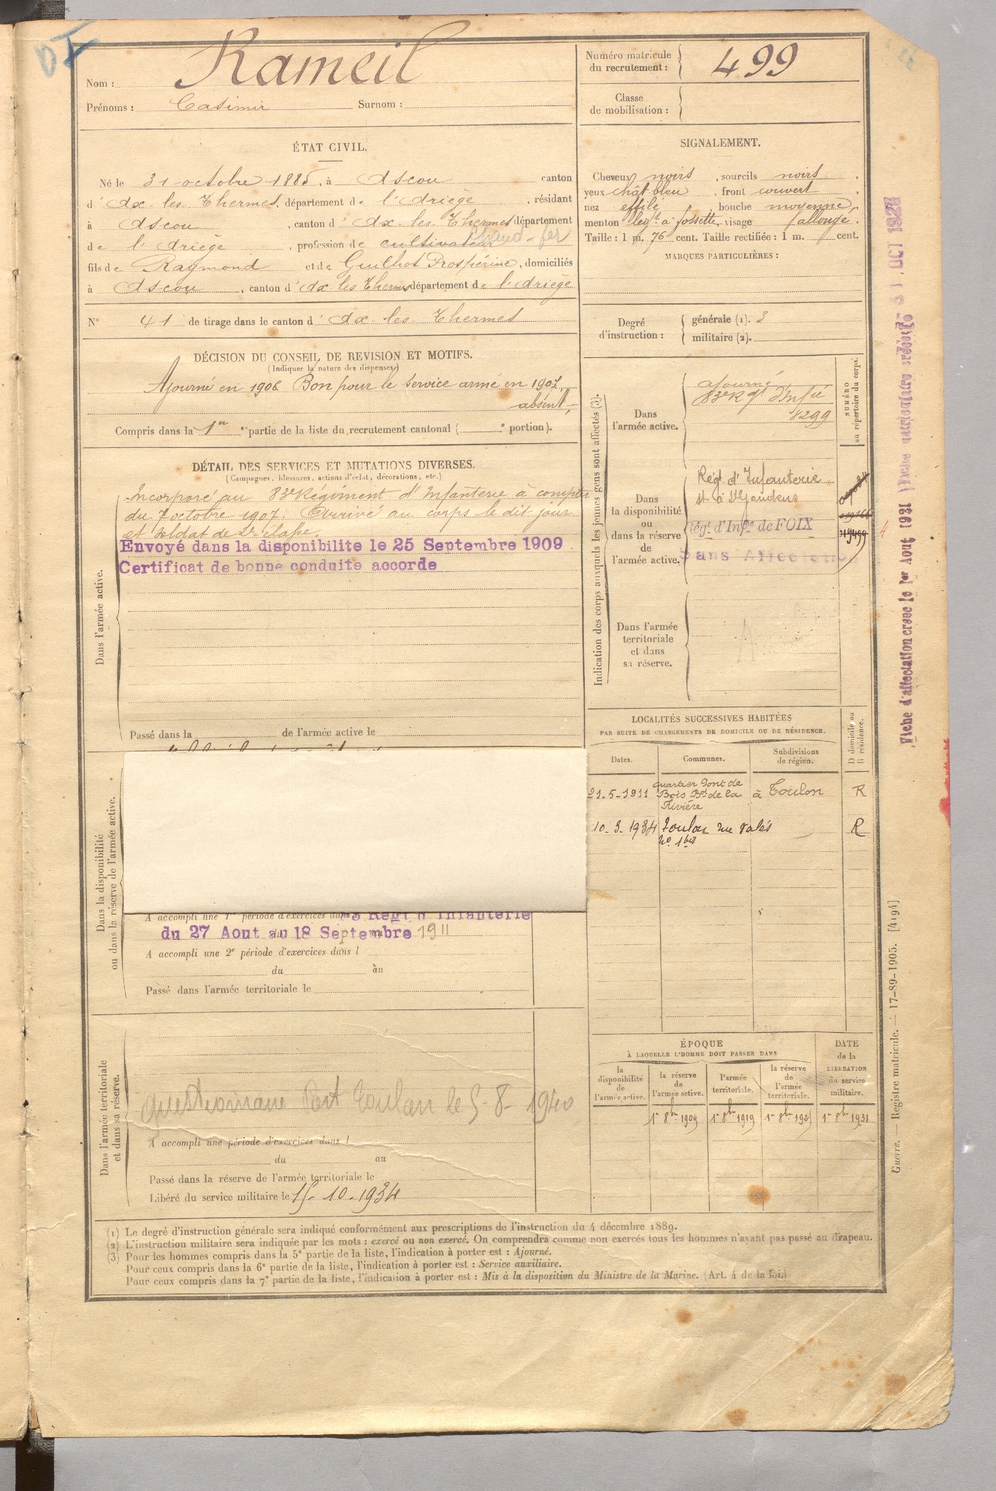 Nom : Rameil
Prénoms : Casimir Surnom :
Numéro matricule du recrutement : 499
Classe de mobilisation :
ÉTAT CIVIL.
Né le 31 octobre 1885, à Ascou canton
d' Ax-les-Thermes, département de l'Ariège, résidant
à Ascou, canton d' Ax les Thermes département
de l'Ariège, profession de cultivateur
fils de Raymond et de Guilhot Prospérine, domiciliés
à Ascou, canton d' Ax les Thermes département de l'Ariège
N° 41 de tirage dans le canton d' Ax-les-Thermes
SIGNALEMENT.
Cheveux noirs, sourcils noirs,
yeux chât bleu, front couvert,
nez effilé, bouche moyenne,
menton à fossette, visage allongé.
Taille : 1 m. 76 cent. Taille rectifiée : 1 m. cent.
MARQUES PARTICULIÈRES :
Degré d'instruction : générale (1). 3
militaire (2).
DÉCISION DU CONSEIL DE REVISION ET MOTIFS.
(Indiquer la nature des dispenses)
Ajourné en 1906 Bon pour le service armé en 1907.
absent,
Compris dans la 1re partie de la liste du recrutement cantonal ( portion).
DÉTAIL DES SERVICES ET MUTATIONS DIVERSES.
(Campagnes, blessures, actions d'éclat, décorations, etc.)
Dans l'armée active.
Incorporé au 83e Régiment d'Infanterie à compter
du 7 octobre 1907. Arrivé au corps le dit jour
et soldat de 2e classe.
Envoyé dans la disponibilite le 25 Septembre 1909
Certificat de bonne conduite accorde
Passé dans la de l'armée active le
Dans la disponibilité ou dans la réserve de l'armée active.
A accompli une 1re période d'exercices dans
Régt d'Infanterie
du 27 Aout au 18 Septembre 1911
A accompli une 2e période d'exercices dans
du au
Passé dans l'armée territoriale le
Dans l'armée territoriale et dans sa réserve.
Questionnaire Port Toulon le 5-8-1940
A accompli une période d'exercices dans
du au
Passé dans la réserve de l'armée territoriale le
Libéré du service militaire le 15-10-1934
Indication des corps auxquels les jeunes gens sont affectés (3).
NUMÉRO au répertoire du corps.
Dans l'armée active.
ajourné
83e Rgt d'Infie
Dans la disponibilité ou dans la réserve de l'armée active.
Régt d'Infanterie
St Gaudens
Régt d'Infie de FOIX
Sans Affectation
Dans l'armée territoriale et dans sa réserve.
LOCALITÉS SUCCESSIVES HABITÉES
PAR SUITE DE CHANGEMENTS DE DOMICILE OU DE RÉSIDENCE.
Dates. Communes. Subdivisions de région. D domicile ou R résidence.
21-5-1911 quartier Pont de Bois de la Rivière à Toulon R
10-3-1934 Toulon rue R
ÉPOQUE
À LAQUELLE L'HOMME DOIT PASSER DANS
la disponibilité de l'armée active. la réserve de l'armée active. l'armée territoriale. la réserve de l'armée territoriale. DATE de la LIBÉRATION du service militaire.
1er 8bre 1909 1er 8bre 1919 1er 8bre 1931
(1) Le degré d'instruction générale sera indiqué conformément aux prescriptions de l'instruction du 4 décembre 1889.
(2) L'instruction militaire sera indiquée par les mots : exercé ou non exercé. On comprendra comme non exercés tous les hommes n'ayant pas passé au drapeau.
(3) Pour les hommes compris dans la 5e partie de la liste, l'indication à porter est : Ajourné.
Pour ceux compris dans la 6e partie de la liste, l'indication à porter est : Service auxiliaire.
Pour ceux compris dans la 7e partie de la liste, l'indication à porter est : Mis à la disposition du Ministre de la Marine. (Art. 4 de la loi.)
Guerre. — Registre matricule. — 17-89-1905. [4194]
Fiche d'affectation créée le 1er Aout 1931